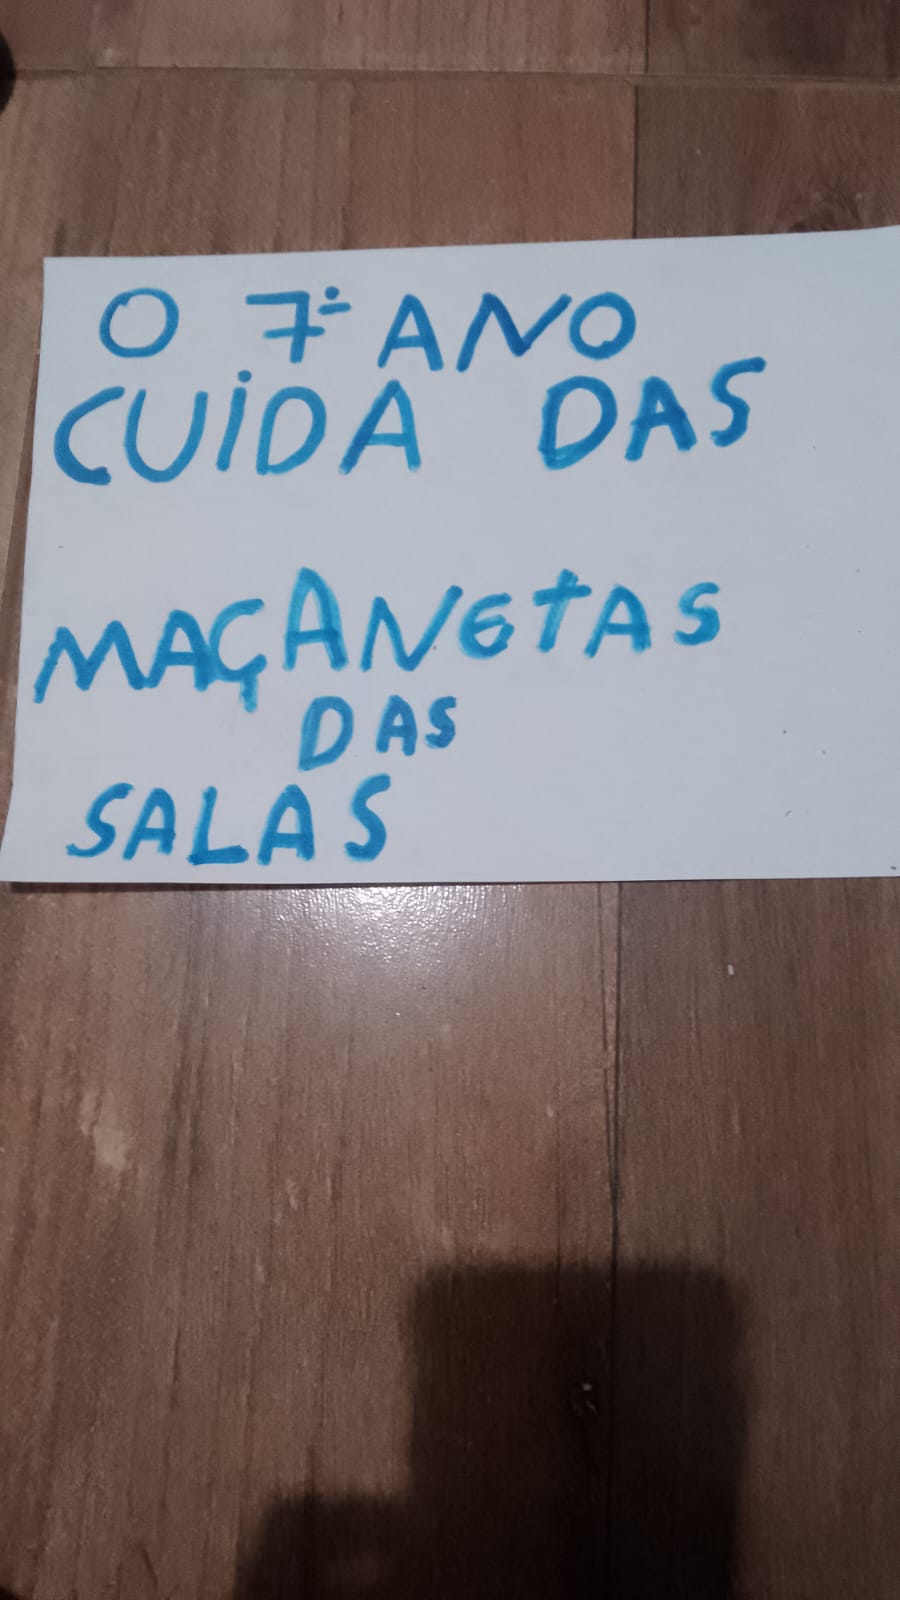 O 7º ANO
CUiDA DAS
MAÇANETAS
DAS
SALAS